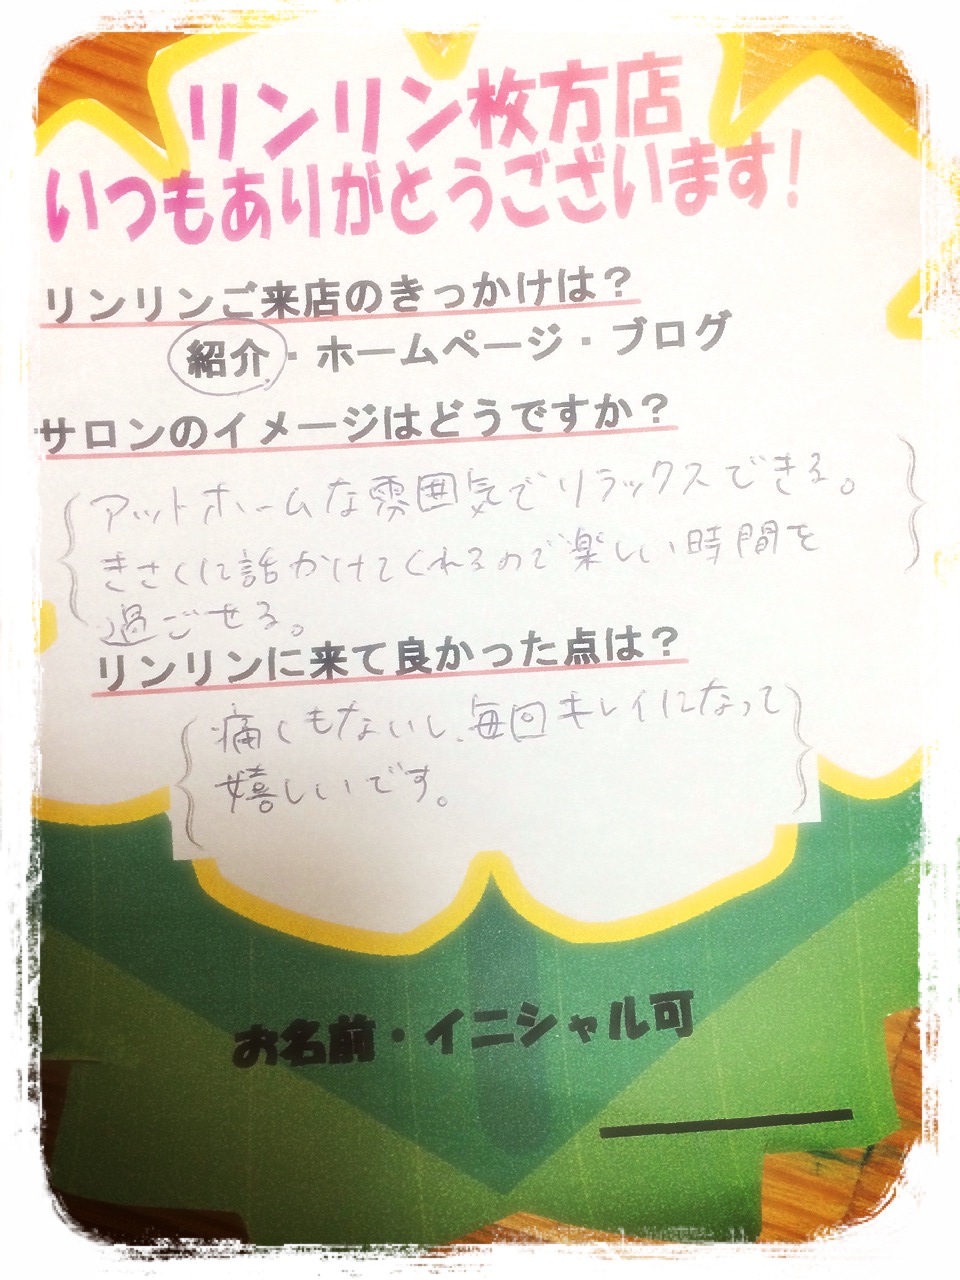 リンリン枚方店
いつもありがとうございます!
リンリンご来店のきっかけは?
紹介・ホームページ・ブログ
サロンのイメージはどうですか?
アットホームな雰囲気でリラックスできる。
きさくに話かけてくれるので楽しい時間を
過ごせる。
リンリンに来て良かった点は?
痛くもないし、毎回キレイになって
嬉しいです。
お名前・イニシャル可